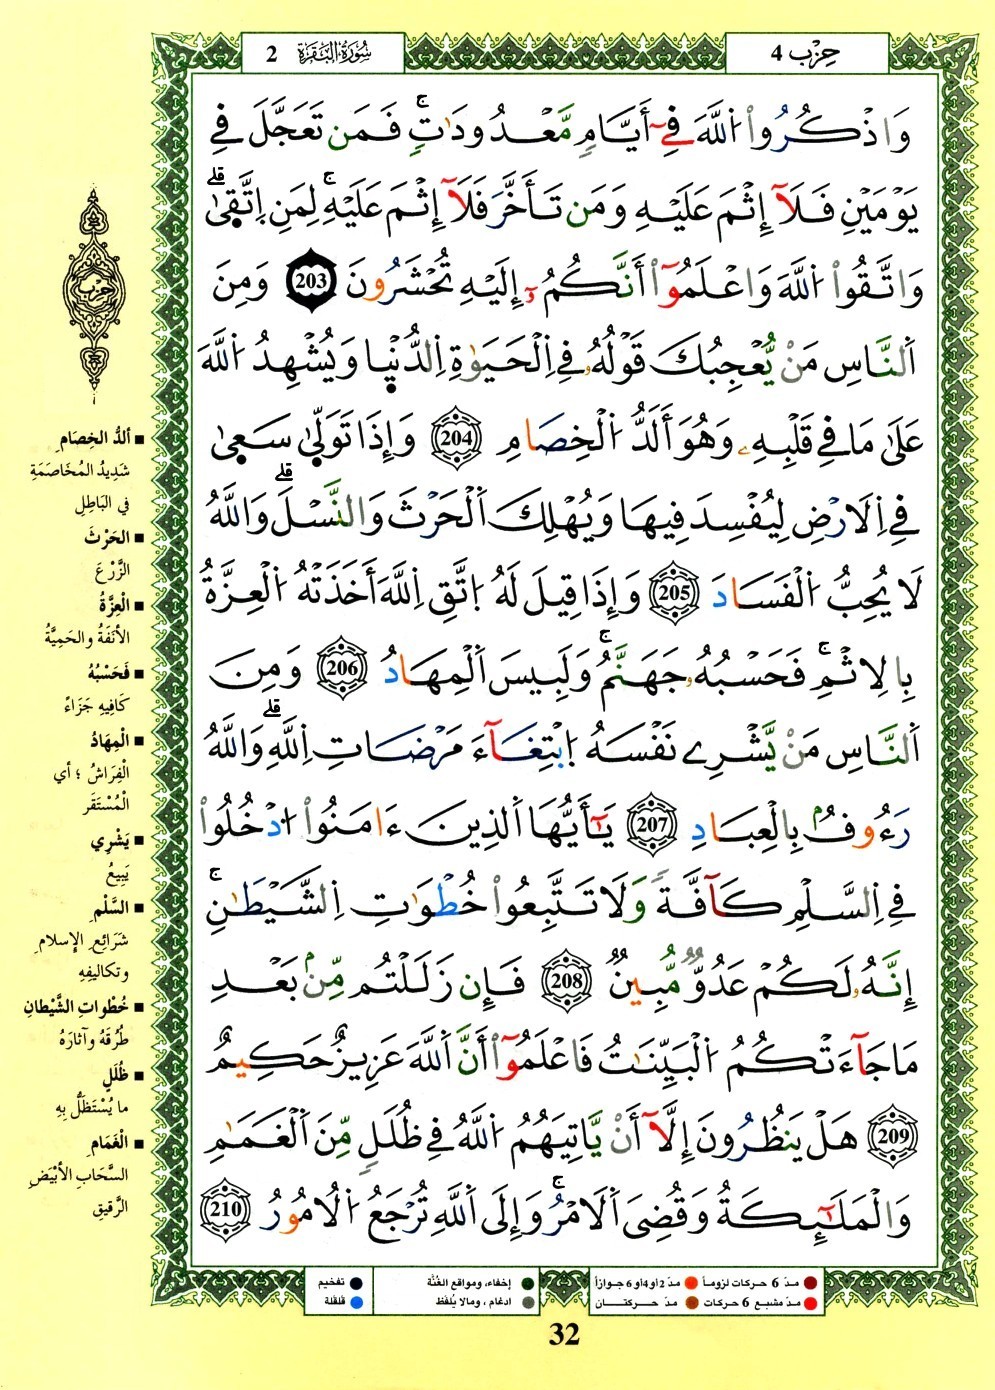 حِزْب 4
سُورَةُ البَقَرَة 2
وَاذْكُرُوا۟ اُ۬للَّهَ فِےٓ أَيَّامٖ مَّعْدُودَٰتٖۚ فَمَن تَعَجَّلَ فِے
يَوْمَيْنِ فَلَآ إِثْمَ عَلَيْهِ وَمَن تَأَخَّرَ فَلَآ إِثْمَ عَلَيْهِۚ لِمَنِ اِ۪تَّق۪ىٰۖ
وَاتَّقُوا۟ اُ۬للَّهَ وَاعْلَمُوٓا۟ أَنَّكُمُۥٓ إِلَيْهِ تُحْشَرُونَ 203 وَمِنَ
اَ۬لنَّاسِ مَنْ يُّعْجِبُكَ قَوْلُهُۥ فِے اِ۬لْحَيَوٰةِ اِ۬لدُّنْي۪ا وَيُشْهِدُ اُ۬للَّهَ
عَلَىٰ مَا فِے قَلْبِهِۦ وَهُوَ أَلَدُّ اُ۬لْخِصَامِ 204 وَإِذَا تَوَلّ۪ىٰ سَع۪ىٰ
فِے اِ۬لَارْضِ لِيُفْسِدَ فِيهَا وَيُهْلِكَ اَ۬لْحَرْثَ وَالنَّسْلَۖ وَاللَّهُ
لَا يُحِبُّ اُ۬لْفَسَادَ 205 وَإِذَا قِيلَ لَهُ اُ۪تَّقِ اِ۬للَّهَ أَخَذَتْهُ اُ۬لْعِزَّةُ
بِالِاثْمِۚ فَحَسْبُهُۥ جَهَنَّمُۚ وَلَبِيسَ اَ۬لْمِهَادُ 206 وَمِنَ
اَ۬لنَّاسِ مَنْ يَّشْرِے نَفْسَهُ اُ۪بْتِغَآءَ مَرْضَاتِ اِ۬للَّهِۖ وَاللَّهُ
رَءُوفُۢ بِالْعِبَادِ 207 يَٰٓأَيُّهَا اَ۬لذِينَ ءَامَنُوا۟ اُ۟دْخُلُوا۟
فِے اِ۬لسَّلْمِ كَآفَّةٗ وَلَا تَتَّبِعُوا۟ خُطْوَٰتِ اِ۬لشَّيْطَٰنِۚ
إِنَّهُۥ لَكُمْ عَدُوّٞ مُّبِينٞ 208 فَإِن زَلَلْتُم مِّنۢ بَعْدِ
مَا جَآءَتْكُمُ اُ۬لْبَيِّنَٰتُ فَاعْلَمُوٓا۟ أَنَّ اَ۬للَّهَ عَزِيزٌ حَكِيمٌ
209 هَلْ يَنظُرُونَ إِلَّآ أَنْ يَّاتِيَهُمُ اُ۬للَّهُ فِے ظُلَلٖ مِّنَ اَ۬لْغَمَٰمِ
وَالْمَلَٰٓئِكَةُ وَقُضِيَ اَ۬لَامْرُۚ وَإِلَى اَ۬للَّهِ تُرْجَعُ اُ۬لُامُورُ 210
حِزْب
■ أَلَدُّ الخِصَامِ
شَدِيدُ المُخَاصَمَةِ
فِي البَاطِلِ
■ الحَرْثَ
الزَّرْعَ
■ الْعِزَّةُ
الأَنَفَةُ والحَمِيَّةُ
■ فَحَسْبُهُ
كَافِيهِ جَزَاءً
■ الْمِهَادُ
الْفِرَاشُ ؛ أي
الْمُسْتَقَر
■ يَشْرِي
يَبِيعُ
■ السَّلْمِ
شَرَائِعِ الإسلامِ
وتكاليفِهِ
■ خُطْواتِ الشَّيْطانِ
طُرُقَهُ وآثارَهُ
■ ظُلَلٍ
ما يُسْتَظَلُّ بِهِ
■ الْغَمَامِ
السَّحَابِ الأَبْيَضِ
الرَّقِيقِ
مدّ 6 حركات لزوماً مدّ 2 أو 4 أو 6 جوازاً
مدّ مشبع 6 حركات مدّ حركتان
إخفاء، ومواقع الغُنَّة
ادغام ، ومالا يُلفَظ
تفخيم
قلقلة
32